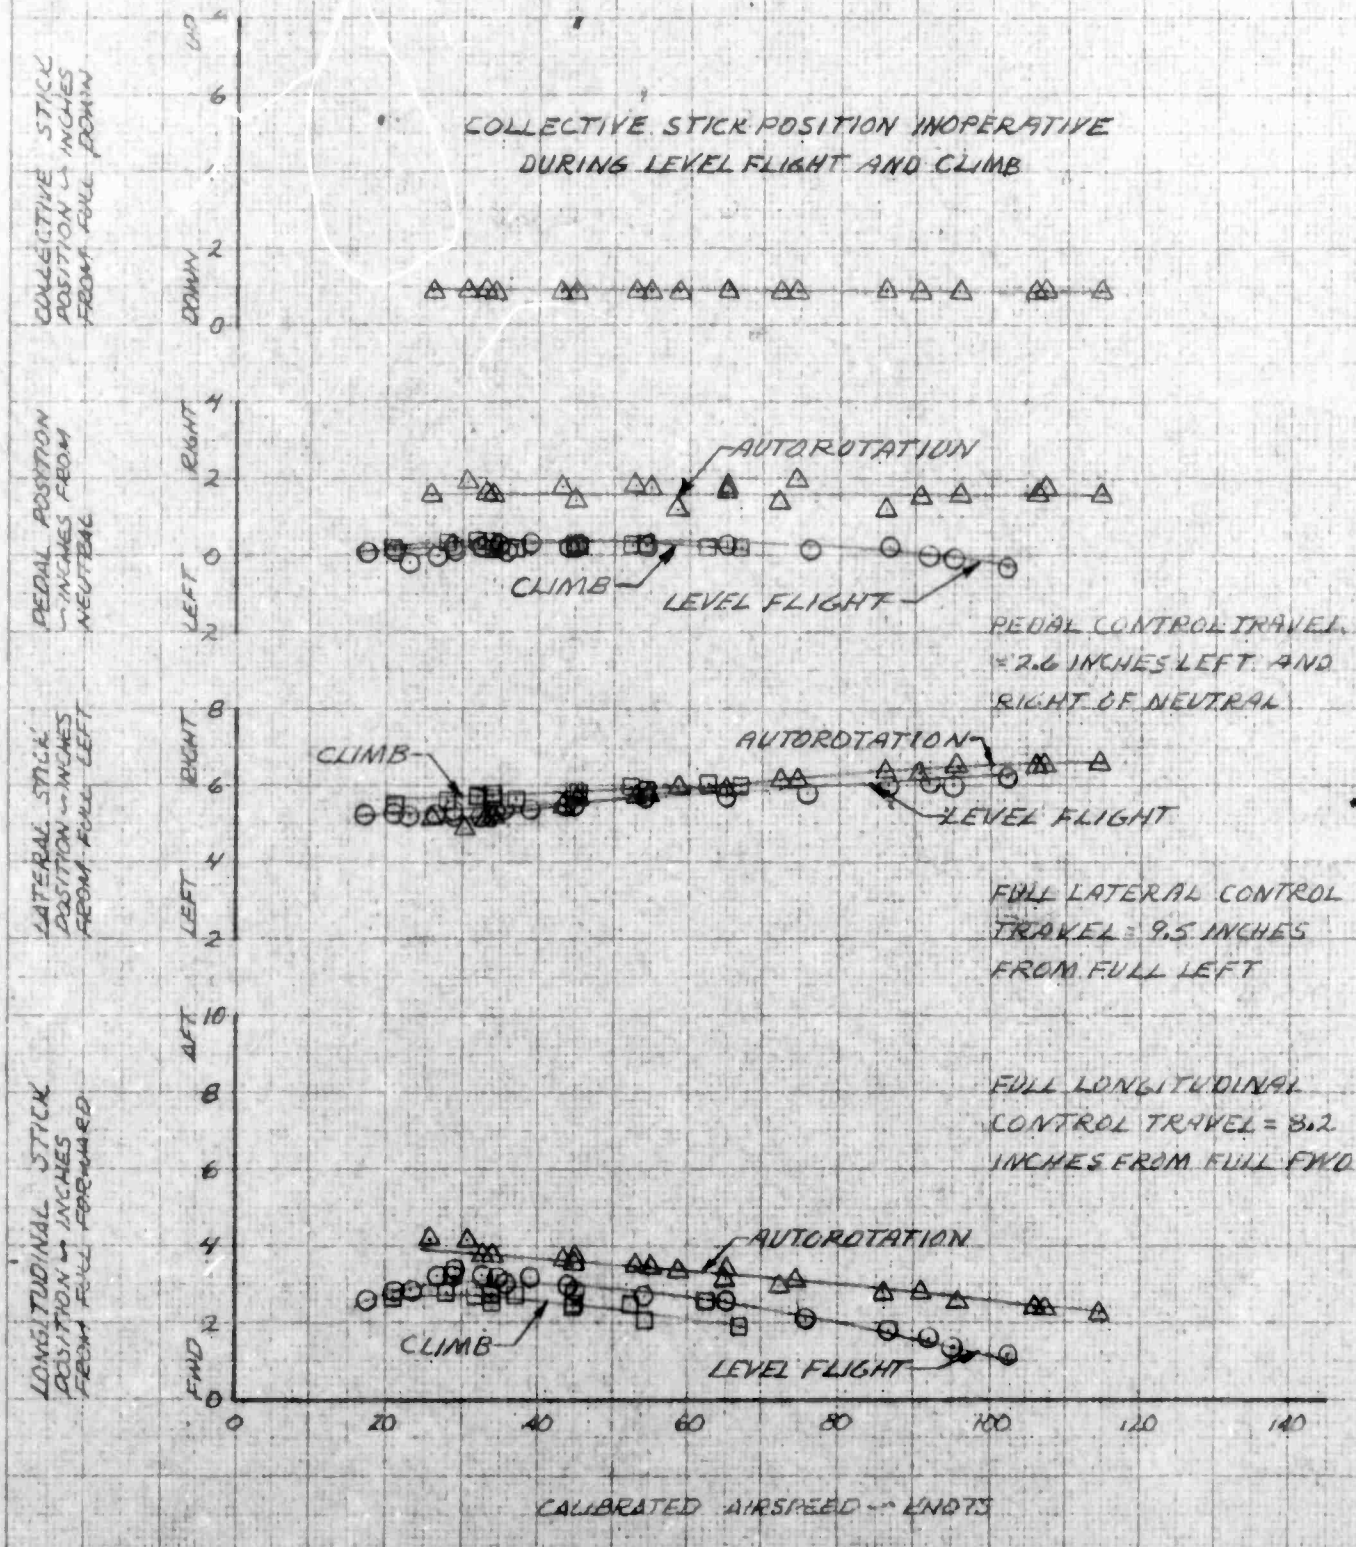 COLLECTIVE STICK
POSITION ~ INCHES
FROM FULL DOWN
UP
6
4
2
0
DOWN
COLLECTIVE STICK POSITION INOPERATIVE
DURING LEVEL FLIGHT AND CLIMB
PEDAL POSITION
~ INCHES FROM
NEUTRAL
RIGHT
LEFT
4
2
0
2
AUTOROTATION
CLIMB
LEVEL FLIGHT
PEDAL CONTROL TRAVEL
= 2.6 INCHES LEFT AND
RIGHT OF NEUTRAL
LATERAL STICK
POSITION ~ INCHES
FROM FULL LEFT
RIGHT
LEFT
8
6
4
2
CLIMB
AUTOROTATION
LEVEL FLIGHT
FULL LATERAL CONTROL
TRAVEL = 9.5 INCHES
FROM FULL LEFT
LONGITUDINAL STICK
POSITION ~ INCHES
FROM FULL FORWARD
AFT
FWD
10
8
6
4
2
0
FULL LONGITUDINAL
CONTROL TRAVEL = 8.2
INCHES FROM FULL FWD
AUTOROTATION
CLIMB
LEVEL FLIGHT
0 20 40 60 80 100 120 140
CALIBRATED AIRSPEED ~ KNOTS